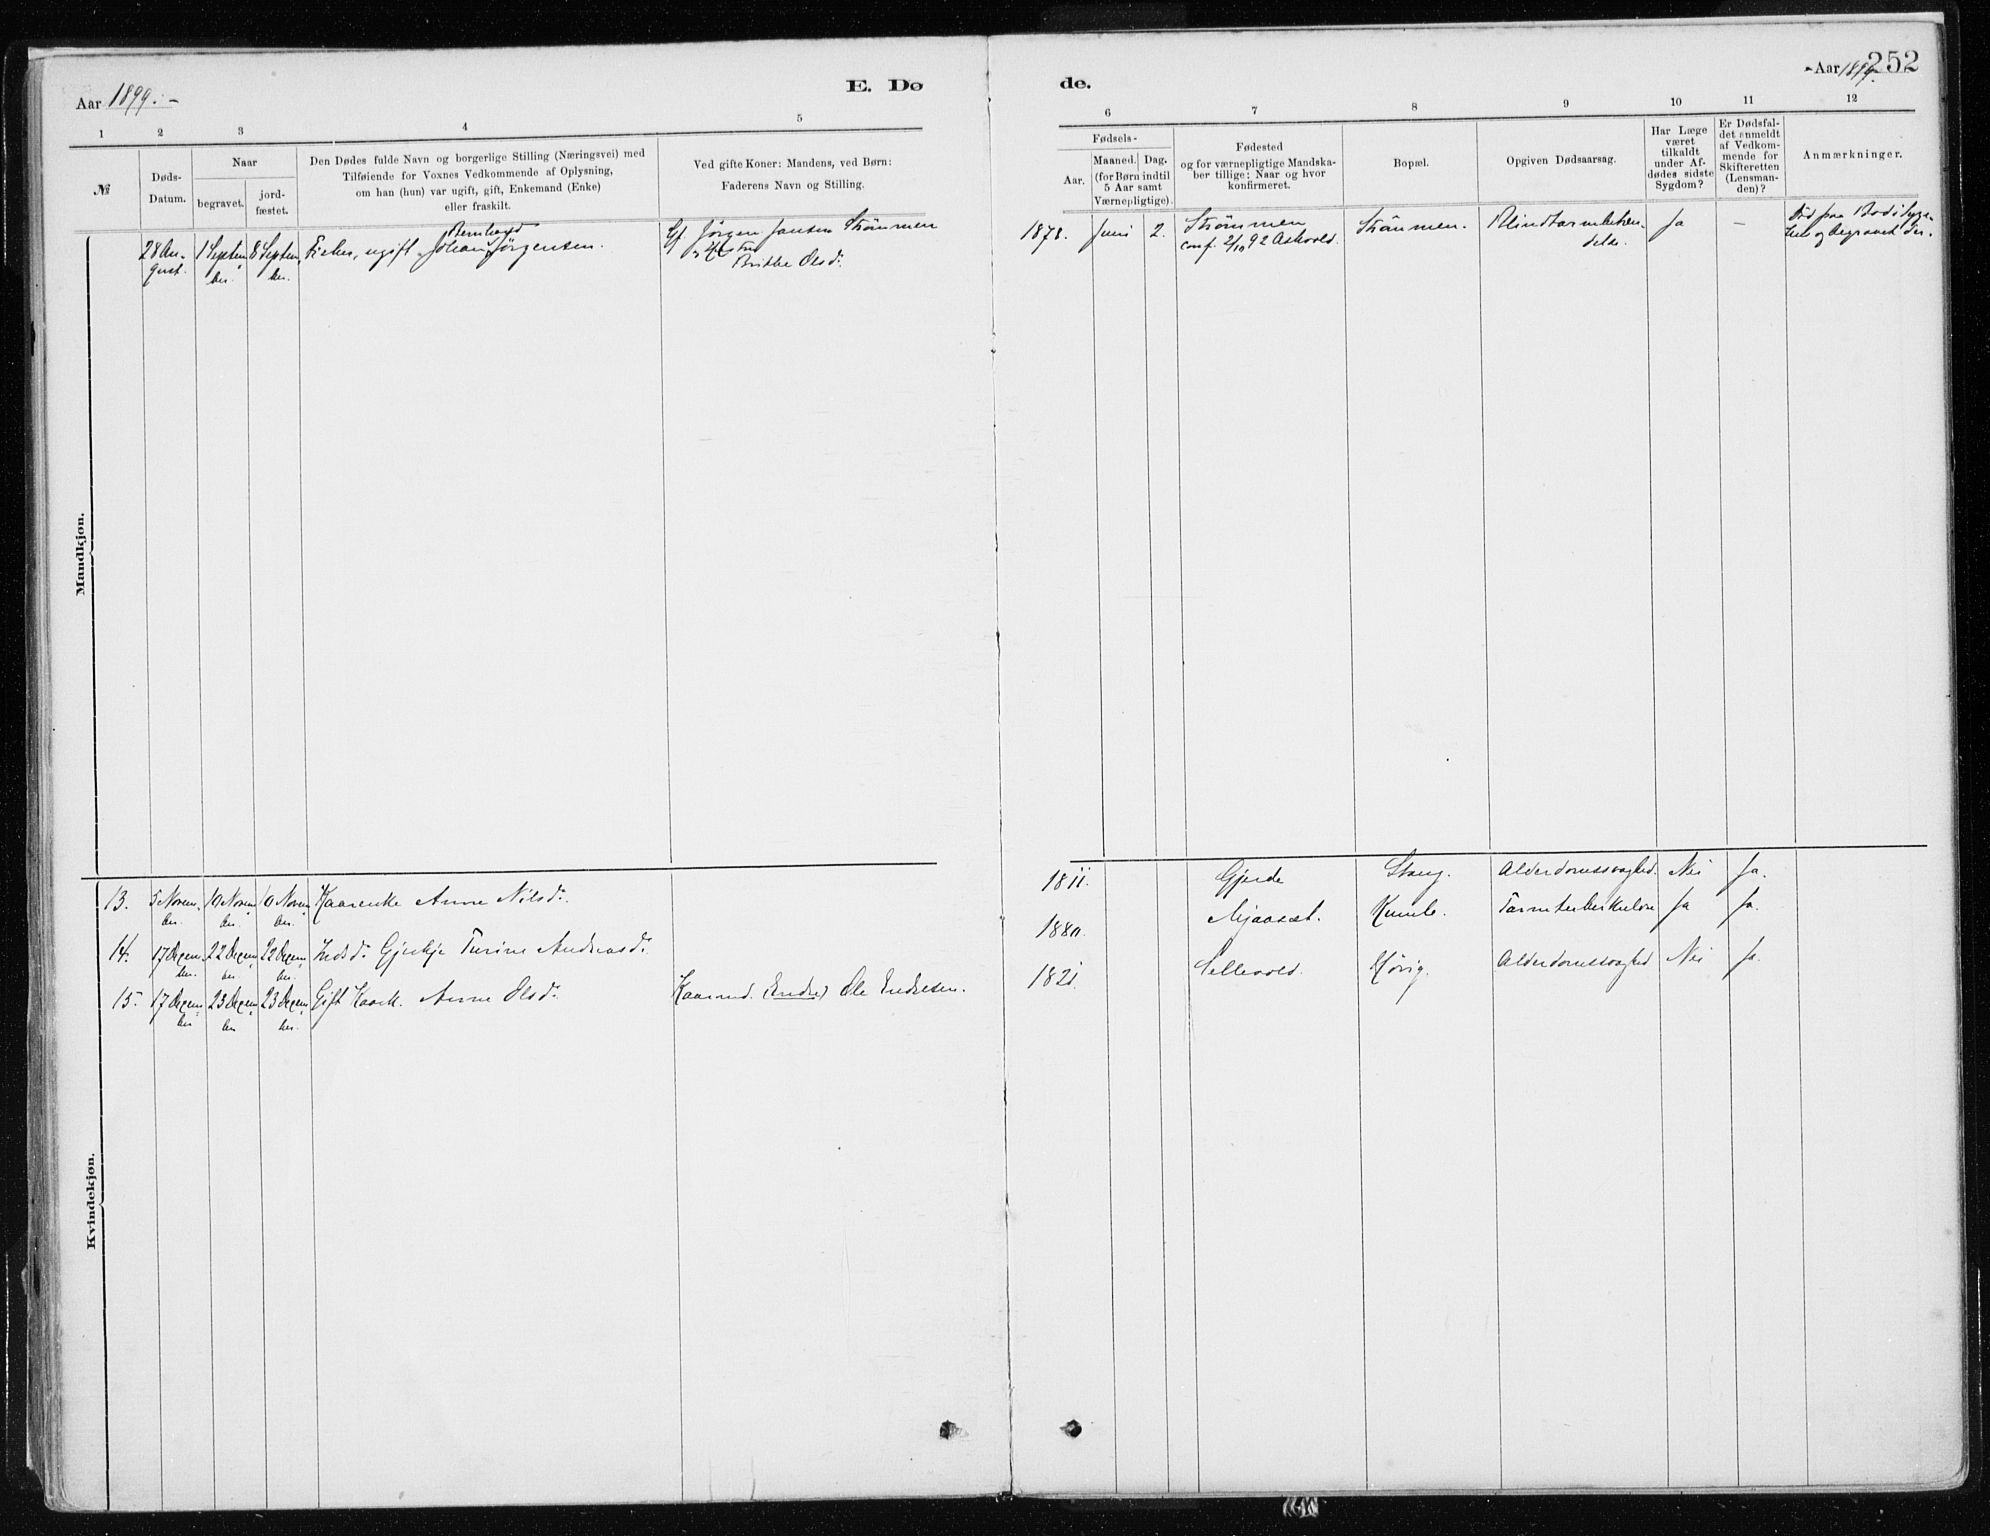 252
Aar 1899.
E. Dø
de.
Aar 1899.
1 2 3 4 5 6 7 8 9 10 11 12
№
Døds-
Datum.
Naar
begravet.
jord-
fæstet.
Den Dødes fulde Navn og borgerlige Stilling (Næringsvei) med
Tilføiende for Voxnes Vedkommende af Oplysning,
om han (hun) var ugift, gift, Enkemand (Enke)
eller fraskilt.
Ved gifte Koner: Mandens, ved Børn:
Faderens Navn og Stilling.
Fødsels-
Aar.
Maaned. Dag.
(for Børn indtil
5 Aar samt
Værnepligtige).
Fødested
og for værnepligtige Mandska-
ber tillige: Naar og hvor
konfirmeret.
Bopæl.
Opgiven Dødsaarsag.
Har Læge
været
tilkaldt
under Af-
dødes sidste
Sygdom?
Er Dødsfal-
det anmeldt
af Vedkom-
mende for
Skifteretten
(Lensman-
den)?
Anmærkninger.
Mandkjøn.
28 Au-
gust.
1 Septem
ber.
8 Septem
ber.
Bernhard
Fisker, ugift Johan Jørgensen.
Gf Jørgen Jansen Strömmen
Hustru
Brithe Olsd.
1878. Juni 2.
Strömmen
conf. 2/10 92 Askvold.
Strömmen.
Blindtarmbetæn-
delse.
Ja
—
Död paa Bodö Syge-
hus og begravet der.
Kvindekjøn.
13. 5 Novem
ber.
10 Novem
ber.
10 Novem
ber.
Kaarenke Anne Nilsd.
1811. Gjerde Stang. Alderdomssvaghed. Nei Ja.
14. 17 Decem
ber.
22 Decem
ber.
22 Decem
ber.
Indsd. Gjertje Turine Andreasd.
1880. Mjaaset. Kumle. Tarmtuberkulose Ja Ja.
15. 17 Decem
ber
23 Decem
ber
23 Decem
ber.
Gift Kaark. Anne Olsd.
Kaarmd. (Endre) Ole Endresen.
1821. Sellevold. Alderdomssvaghed Nei Ja.